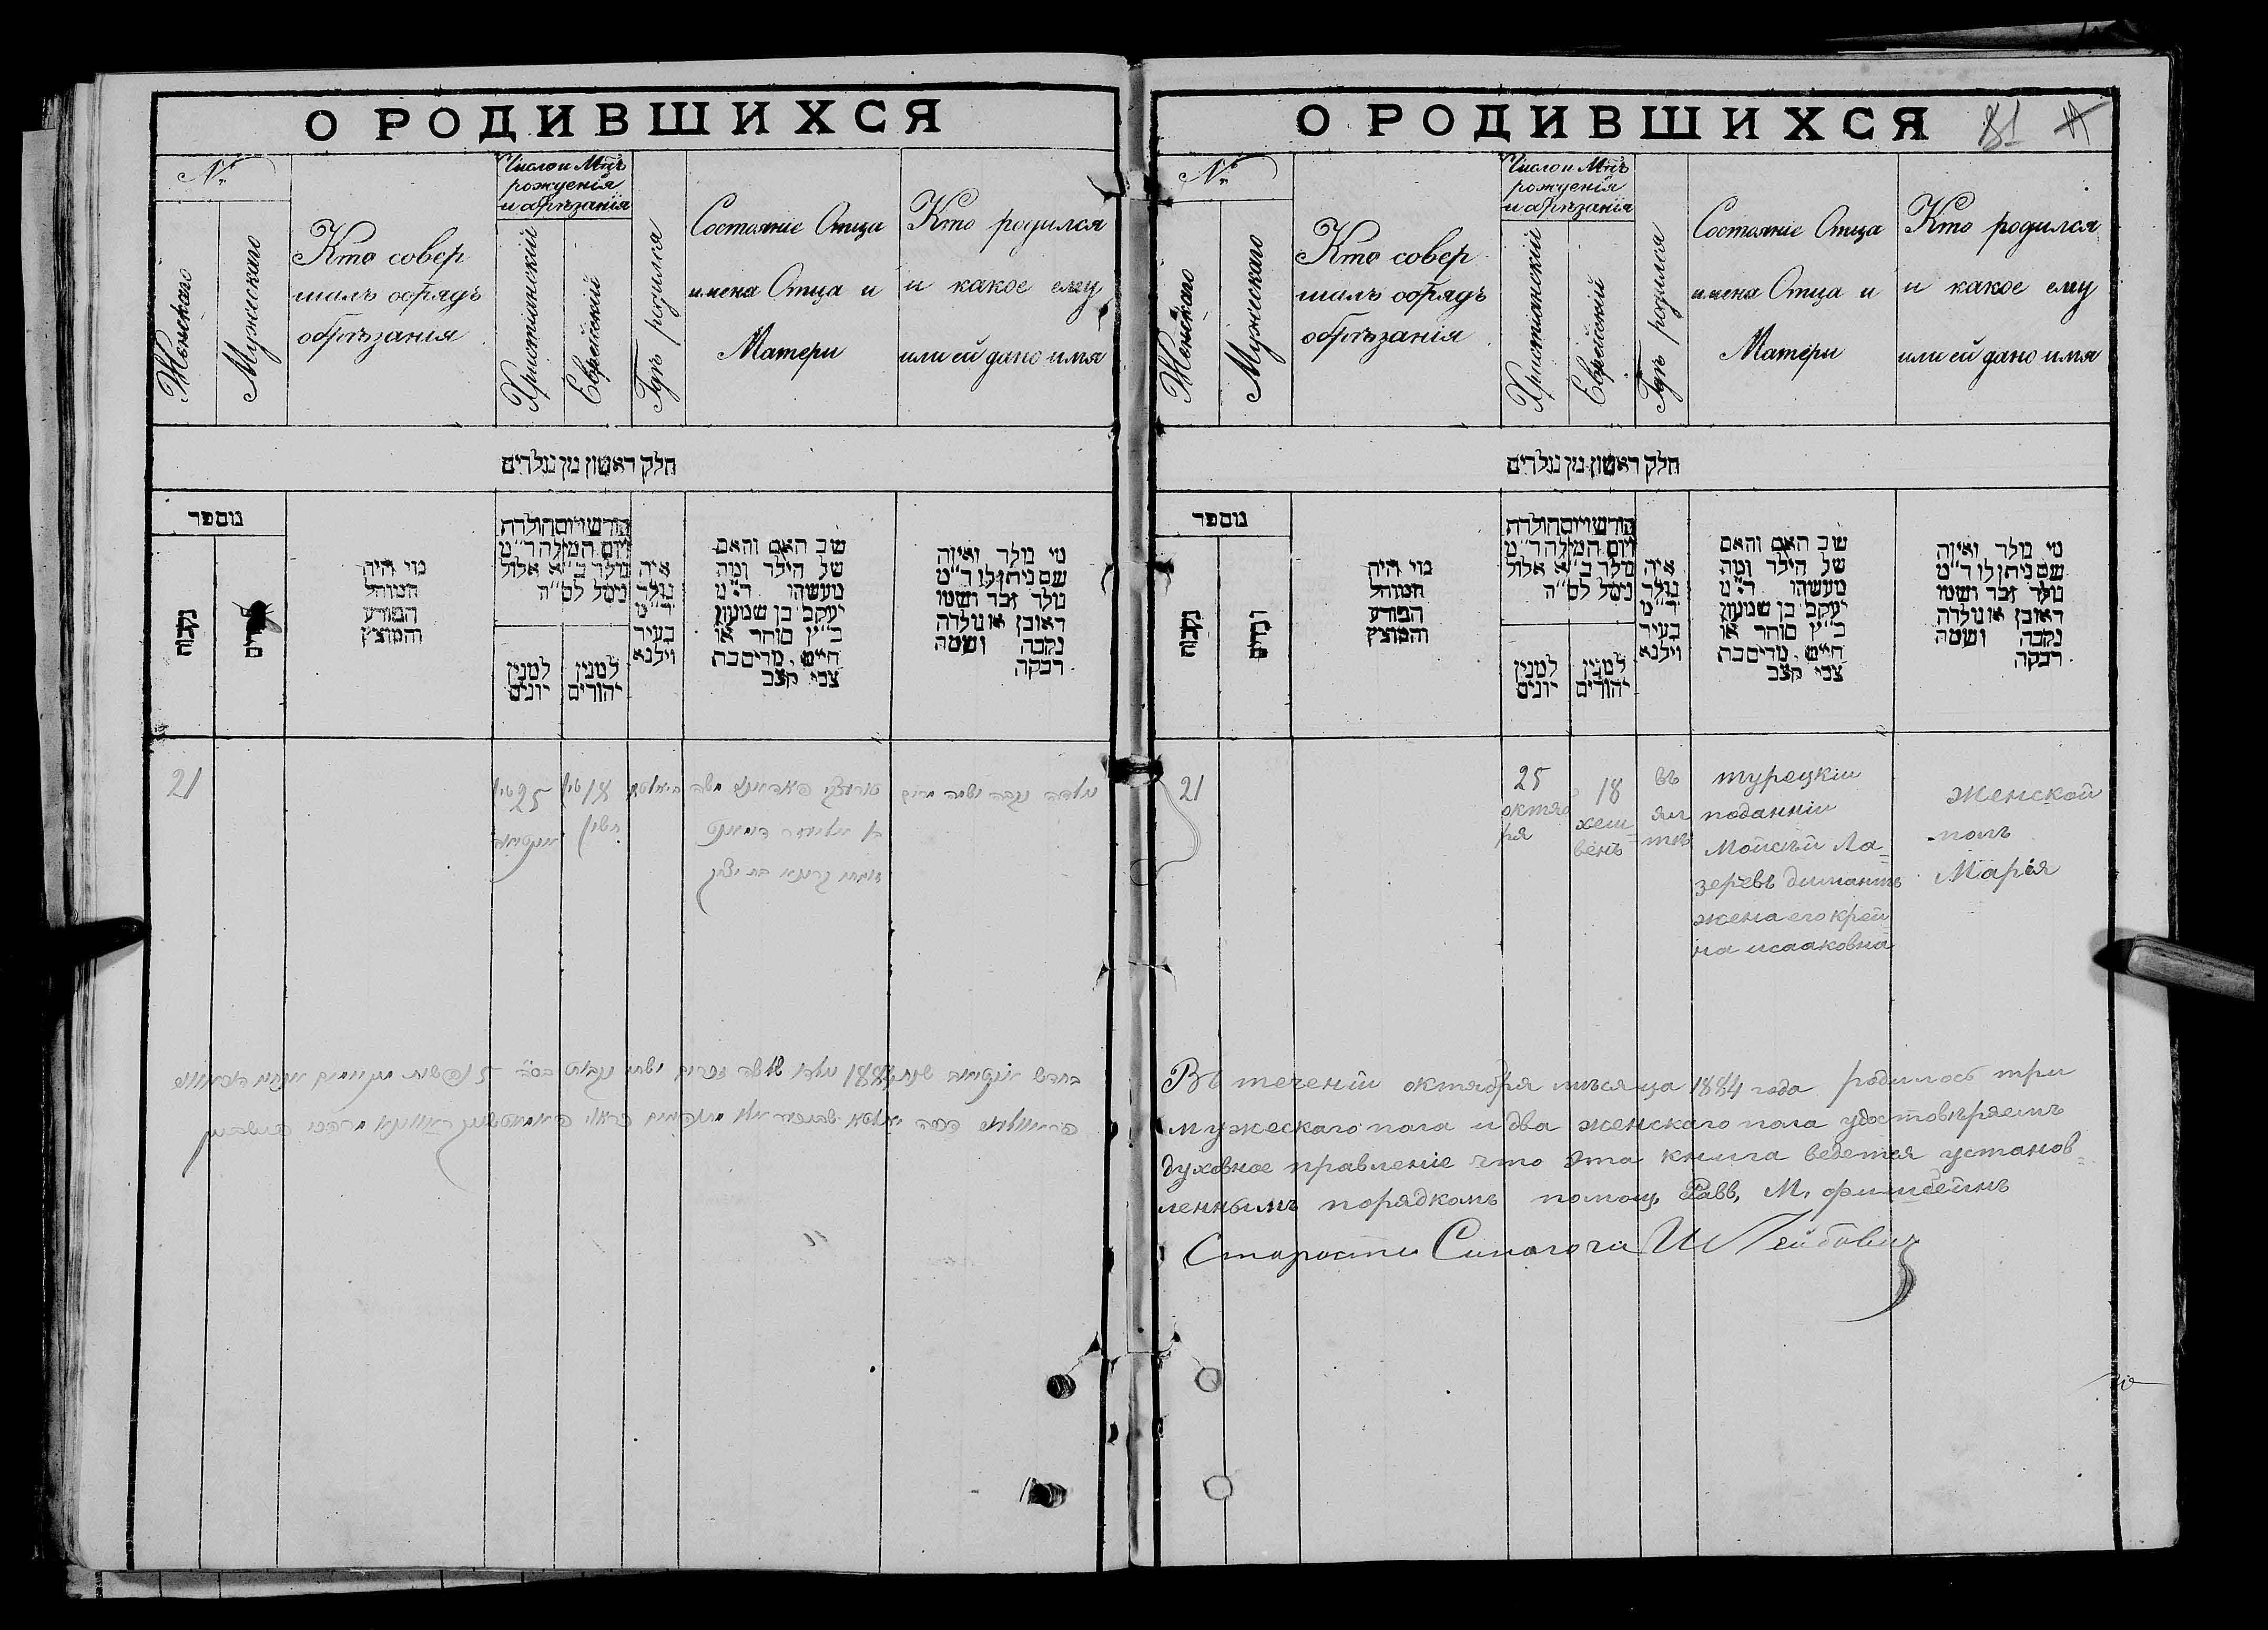 О РОДИВШИХСЯ
№
Женскаго
Мужескаго
Кто совер
шалъ обрядъ
обрѣзанія
Число и Мцъ
рожденія
и обрѣзанія
Христіанскій
Еврейскій
Гдѣ родился
Состояніе Отца
имена Отца и
Матери
Кто родился
и какое ему
или ей дано имя
חלק ראשון מן נולדים
מספר
נקבה
מי היה
המוהל
הפורע
והמוצץ
חודש ויום הולדת
ויום המילה ד״מ
נולד ב״א אלול
נימל לס״ה
למנין
יונים
למנין
יהודים
איה
נולד
ד״מ
בעיר
וילנא
שם האב והאם
של הילד ומה
מעשהו ד״מ
יעקב בן שמעון
כ״ץ סוחר או
חייט, מרים בת
צבי קצב
מי נולד ואיזה
שם ניתן לו ד״מ
נולד זכר ושמו
ראובן או נולדה
נקבה ושמה
רבקה
21
25
18
נולדה נקבה ושמה מרים
О РОДИВШИХСЯ
81
№
Женскаго
Мужескаго
Кто совер
шалъ обрядъ
обрѣзанія
Число и Мцъ
рожденія
и обрѣзанія
Христіанскій
Еврейскій
Гдѣ родился
Состояніе Отца
имена Отца и
Матери
Кто родился
и какое ему
или ей дано имя
חלק ראשון מן נולדים
מספר
נקבה
זכרים
מי היה
המוהל
הפורע
והמוצץ
חודש ויום הולדת
ויום המילה ד״מ
נולד ב״א אלול
נימל לס״ה
למנין
יונים
למנין
יהודים
איה
נולד
ד״מ
בעיר
וילנא
שם האב והאם
של הילד ומה
מעשהו ד״מ
יעקב בן שמעון
כ״ץ סוחר או
חייט, מרים בת
צבי קצב
מי נולד ואיזה
שם ניתן לו ד״מ
נולד זכר ושמו
ראובן או נולדה
נקבה ושמה
רבקה
21
25
октяб
ря
18
хеш-
венъ
въ
ял
тѣ
турецкіи
поданніи
Мойсѣй Ла=
зеревъ димантъ
жена его крей
на исааковна
женской
полъ
Марія
Въ теченіи октября мѣсяца 1884 года родилось три
мужескаго пола и два женскаго пола удостовѣряетъ
духовное правленіе что эта книга ведется установ=
леннымъ порядкомъ помощ. Равв. М. фишбейнъ
Старости Синагоги Ш Лейбовичъ